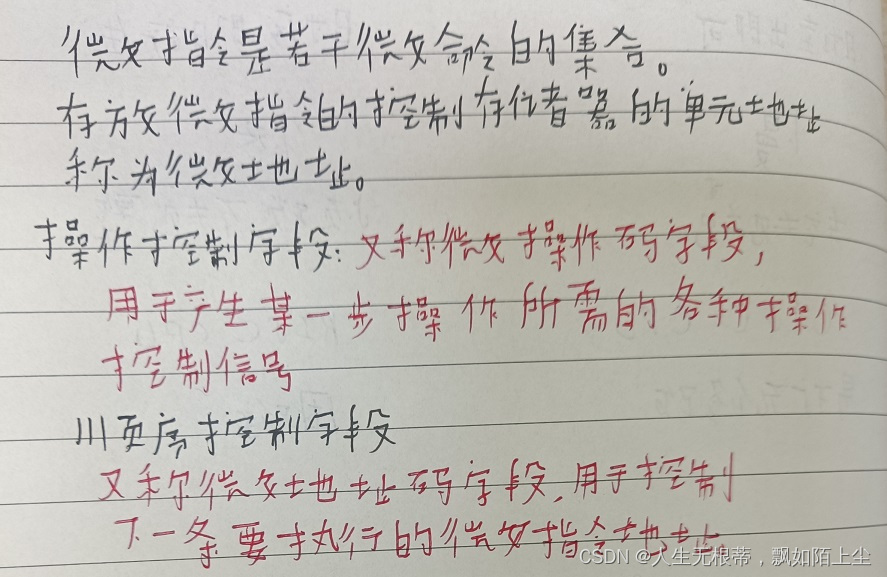 微指令是若干微命令的集合。
存放微指令的控制存储器的单元地址
称为微地址。
操作控制字段:又称微操作码字段,
用于产生某一步操作所需的各种操作
控制信号
顺序控制字段
又称微地址码字段,用于控制
下一条要执行的微指令地址。
CSDN @人生无根蒂,飘如陌上尘